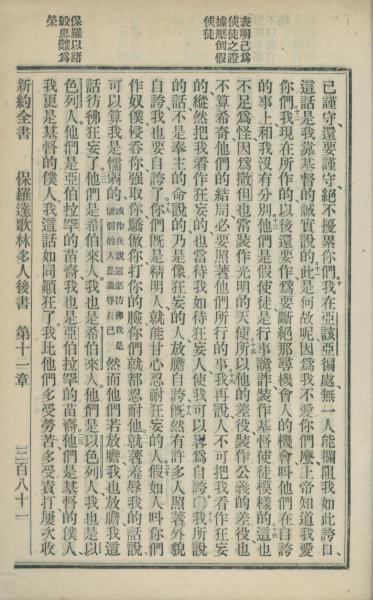 表明己爲
使徒之證
據壓倒假
使徒
保羅以諸
般患難爲
榮
已謹守、還要謹守、絕不擾累你們、我在亞該亞徧處、無一人能攔阻我如此誇口、
這話是我靠基督的誠實說的、此是何故呢、因爲我不愛你們麽、上帝知道我愛
你們、我現在所作的、以後還要作、爲要斷絕那尋機會人的機會、叫他們在自誇
的事上、和我沒有分別、他們是假使徒、是行事詭詐、裝作基督使徒模樣的、這也
不足爲怪、因爲撒但也當裝作光明的天使、所以他的差役、裝作公義的差役、也
不算希奇、他們的結局、必要照著他們所行的事、我再說、人不可把我看作狂妄
的、縱然把我看作狂妄的、也當待我如待狂妄人、使我可以畧爲自誇○我所說
的話、不是奉主的命說的、乃是像狂妄的人放膽自誇、旣然有許多人照著外貌
自誇、我也要自誇了、你們旣是精明人、就能甘心忍耐狂妄的人、假如人呌你們
作奴僕、侵呑你、強取你、驕傲你、打你的臉、你們就都忍耐他、就著羞辱我的話說、
可以算我是懦弱的、或作我說這話彷彿我是懦弱的人是羞辱自己然而他們若放膽、我也放膽、我這
話彷彿狂妄了、他們是希伯來人、我也是希伯來人、他們是以色列人、我也是以
色列人、他們是亞伯拉罕的苗裔、我也是亞伯拉罕的苗裔、他們是基督的僕人、
我更是基督的僕人、我這話如同顚狂了、我比他們多受勞苦、多受責打、屢次收
新約全書　保羅達歌林多人後書　第十一章　三百八十一